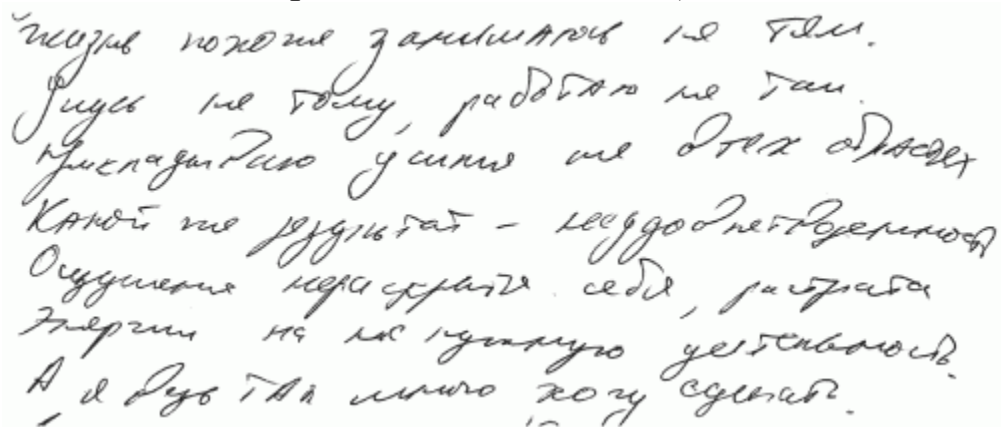 Жизнь похоже занимаюсь не тем.
Учусь не тому, работаю не там.
Прикладываю усилия не в тех областях
Какой же результат - неудовлетворенность
Ощущение нераскрытия себя, растрата
Энергии на не нужную деятельность.
А я ведь так много хочу сделать.